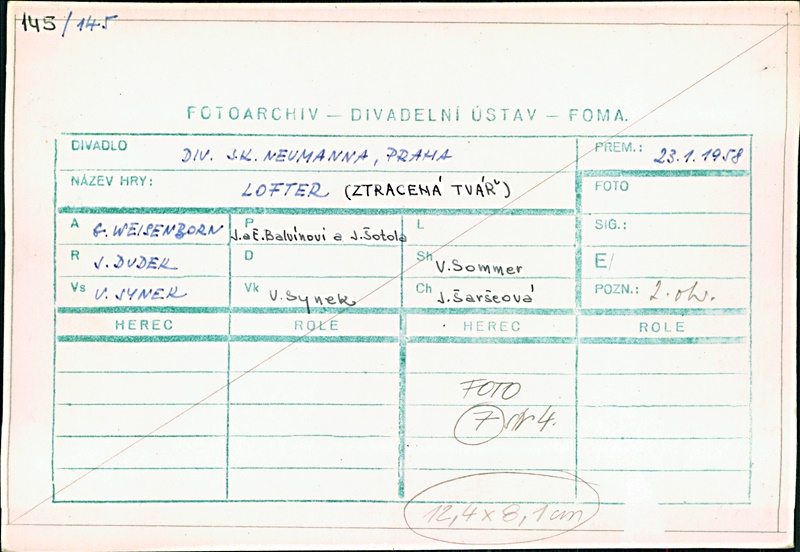 145/145
FOTOARCHIV — DIVADELNÍ ÚSTAV — FOMA.
DIVADLO DIV. J.K. NEUMANNA, PRAHA PREM.: 23.1.1958
NÁZEV HRY: LOFTER (ZTRACENÁ TVÁŘ) FOTO
A G. WEISENBORN P J. a E. Balvínovi a J. Šotola L SIG.:
R J. DUDEK D Sh V. Sommer E/
Vs V. SYNEK Vk V. Synek Ch J. Šaršeová POZN.: 2. ob.
HEREC ROLE HEREC ROLE
FOTO
7 4.
12,4 x 8,1 cm